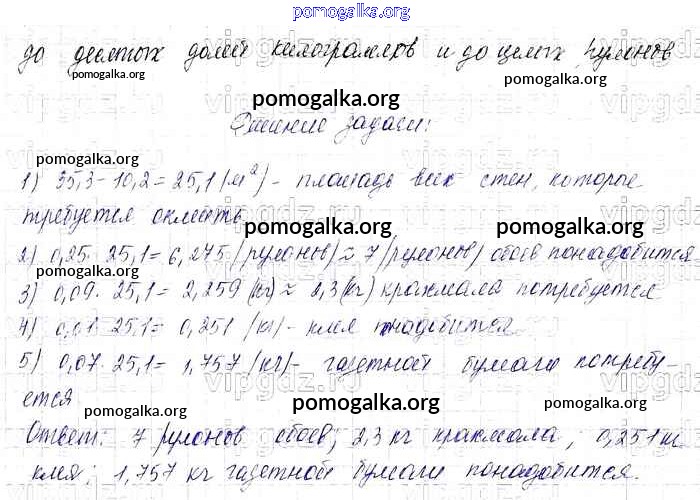 pomogalka.org
до десятых долей килограммов и до целых рулонов
pomogalka.org pomogalka.org
pomogalka.org
vipgdz.ru
Решение задачи:
pomogalka.org
1) 35,3-10,2=25,1 (м²) - площадь всех стен, которые
требуется оклеить
pomogalka.org pomogalka.org
2) 0,25 · 25,1 = 6,275 (рулонов) ≈ 7 (рулонов) обоев понадобится
pomogalka.org
3) 0,09 · 25,1 = 2,259 (кг) ≈ 2,3 (кг) крахмала потребуется
4) 0,01 · 25,1 = 0,251 (кг) - клея понадобится
5) 0,07 · 25,1 = 1,757 (кг) - газетной бумаги потребу-
ется
pomogalka.org pomogalka.org pomogalka.org
Ответ: 7 рулонов обоев; 2,3 кг крахмала; 0,251 кг
клея; 1,757 кг газетной бумаги понадобится.
pomogalka.org